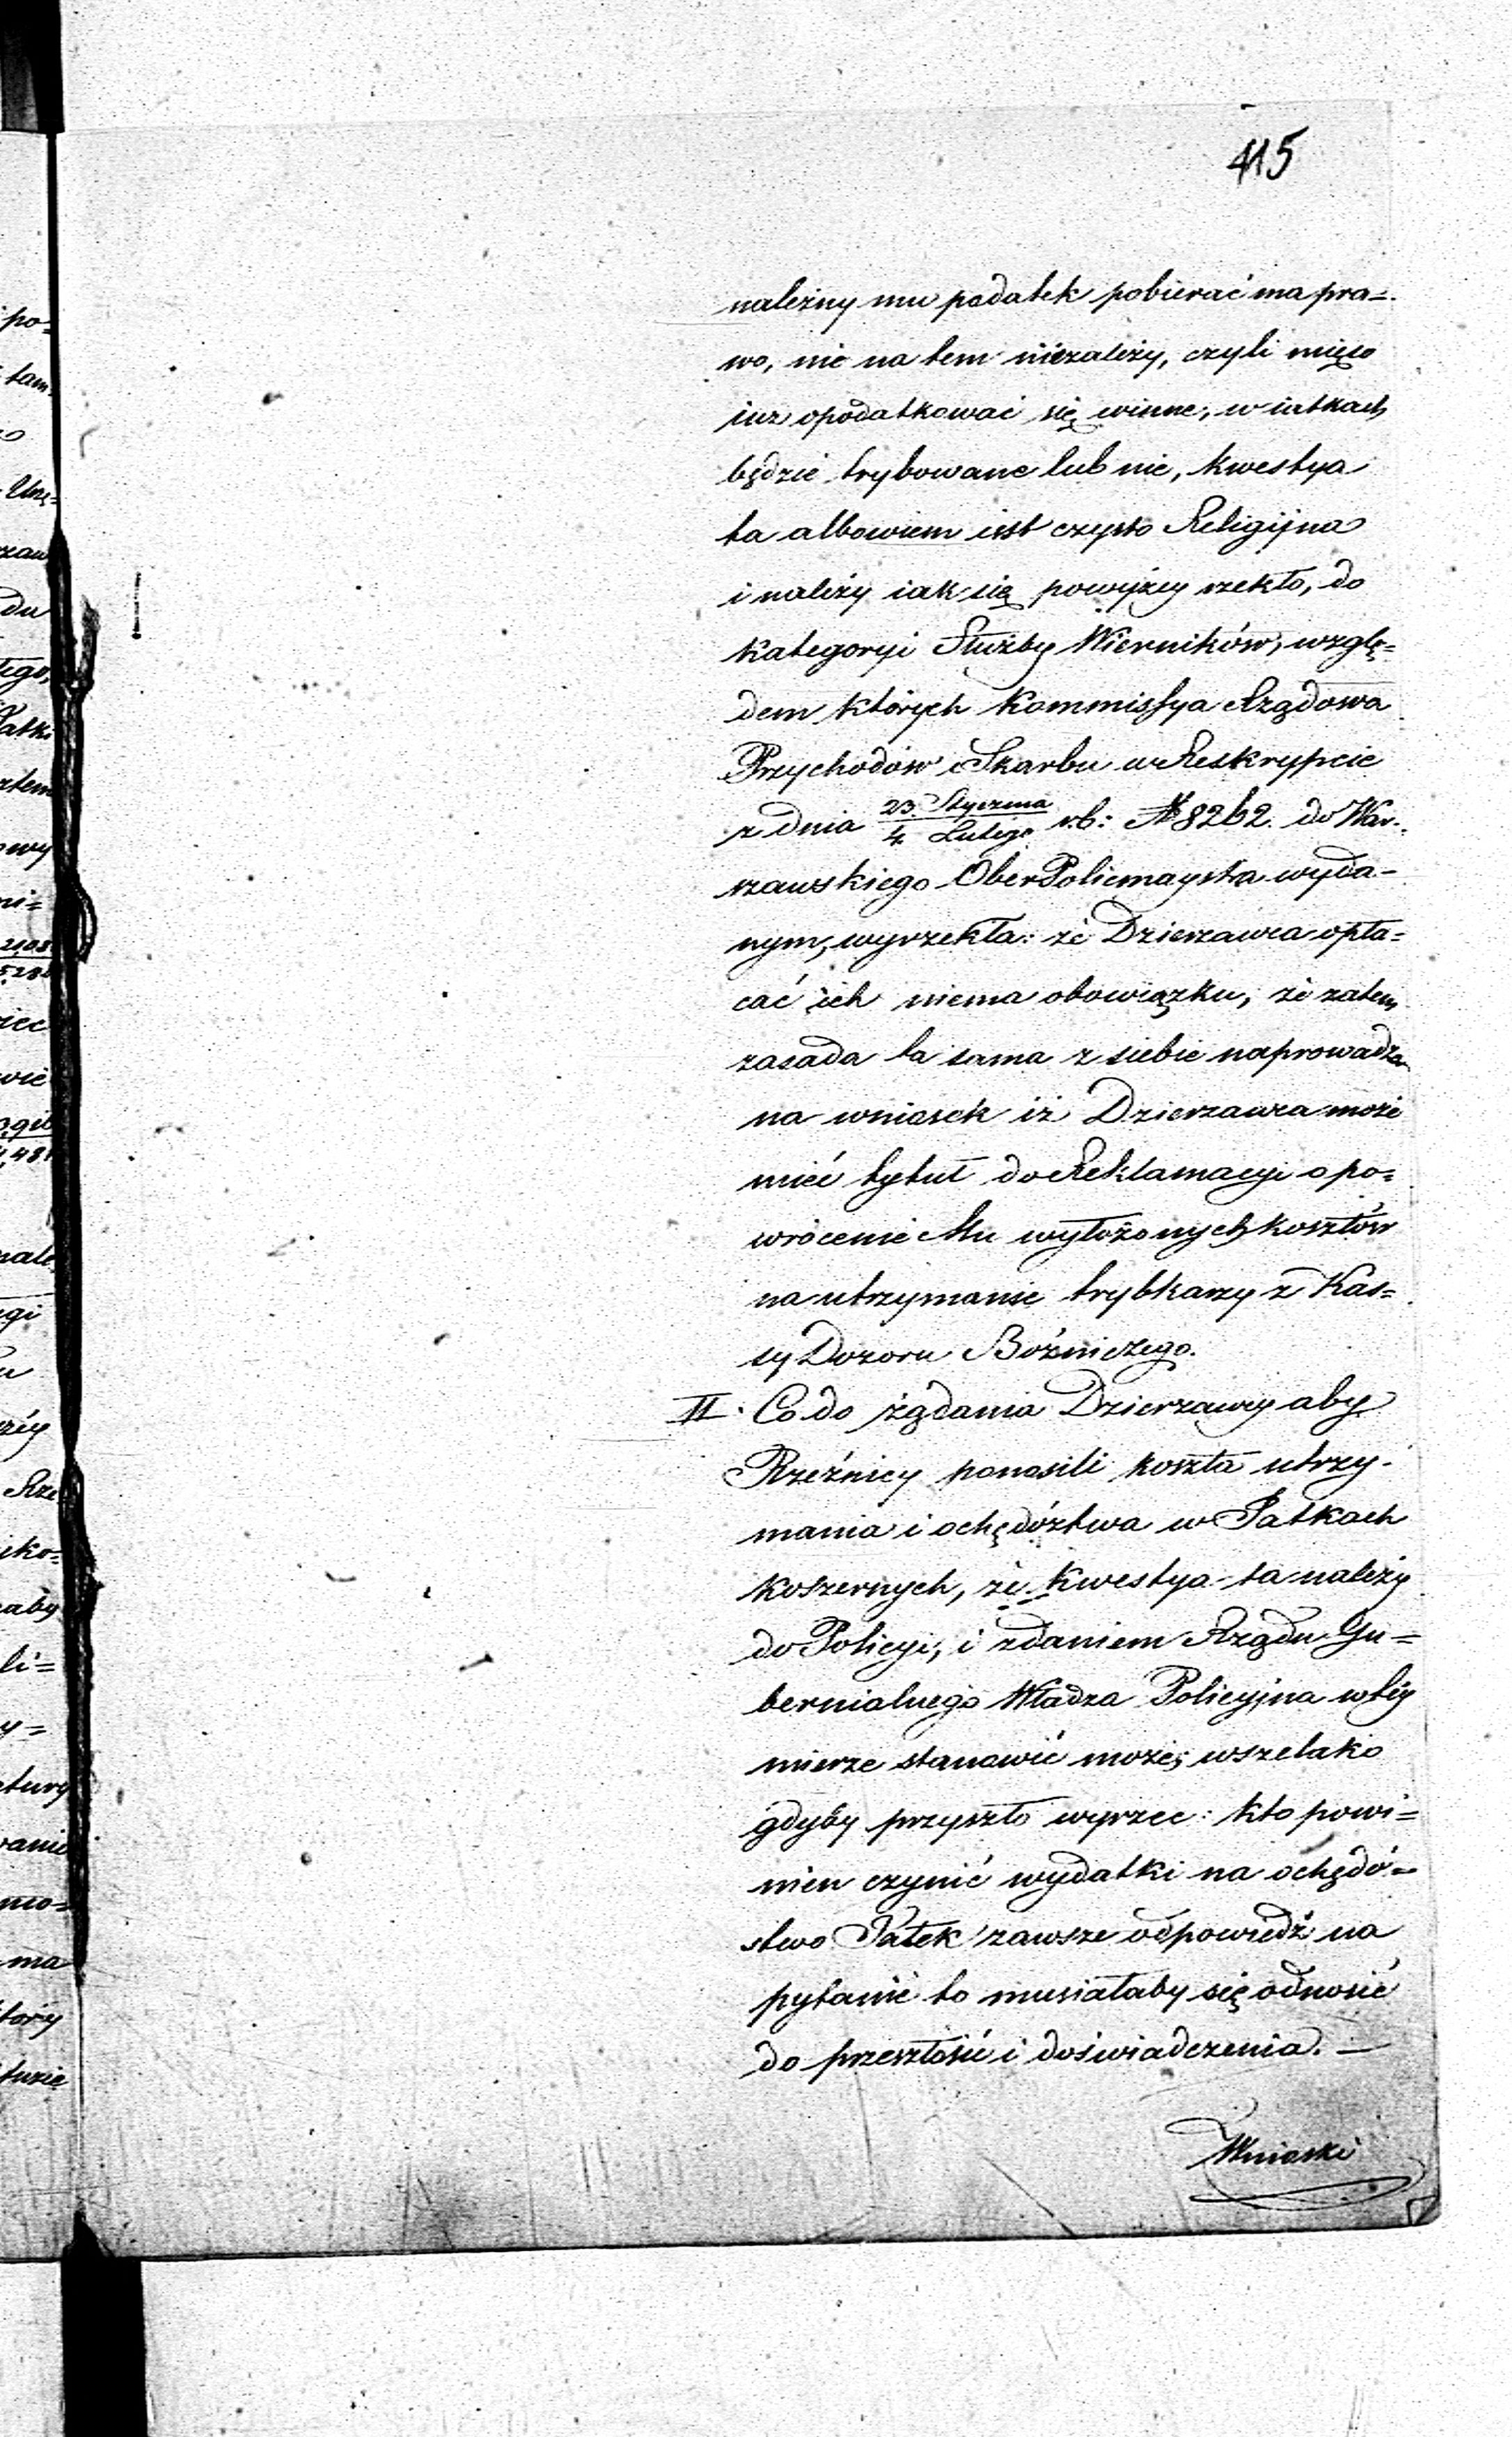 415
należny mu podatek pobierać ma pra=
wo, nic na tem niezależy, czyli mięso
iuz opodatkować się winne, w iatkach
będzie trybowane lub nie, kwestya
ta albowiem iest czysto Religijna
i należy iak się powyżey rzekło, do
kategoryi Służby Wierników, wzglę=
dem których Kommissya Rządowa
Przychodów i Skarbu w Reskrypcie
z dnia 23. Stycznia / 4 Lutego r.b: № 8262. do War=
szawskiego OberPolicmaystra wyda-
nym, wyrzekła: że Dzierzawca opła=
cać ich niema obowiązku, że zatem
zasada ta sama z siebie naprowadza
na wniosek iż Dzierzawca może
mieć tytuł do Reklamacyi o po=
wrócenie Mu wyłożonych kosztów
na utrzymanie trybkarzy z Kas=
sy Dozoru Bóżniczego.
II. Co do żądania Dzierzawcy aby
Rzeźnicy ponosili koszta utrzy-
mania i ochędóztwa w Jatkach
koszernych, że kwestya ta należy
do Policyi, i zdaniem Rządu Gu=
bernialnego Władza Policyjna w téy
mierze stanowić może; wszelako
gdyby przyszło wyrzec: kto powi=
nien czynić wydatki na ochędó=
stwo Jatek zawsze odpowiedź na
pytanie to musiałaby się odnosić
do przeszłości i doświadczenia. —
Wnioski
po=
tam
zau
du
tego,
Jatki
ztem
owy
ni=
2108
5,281
wie
,481
egi
zéy
Rze
sko=
aby
li=
y=
ctury
anie
mo=
ma
tóry